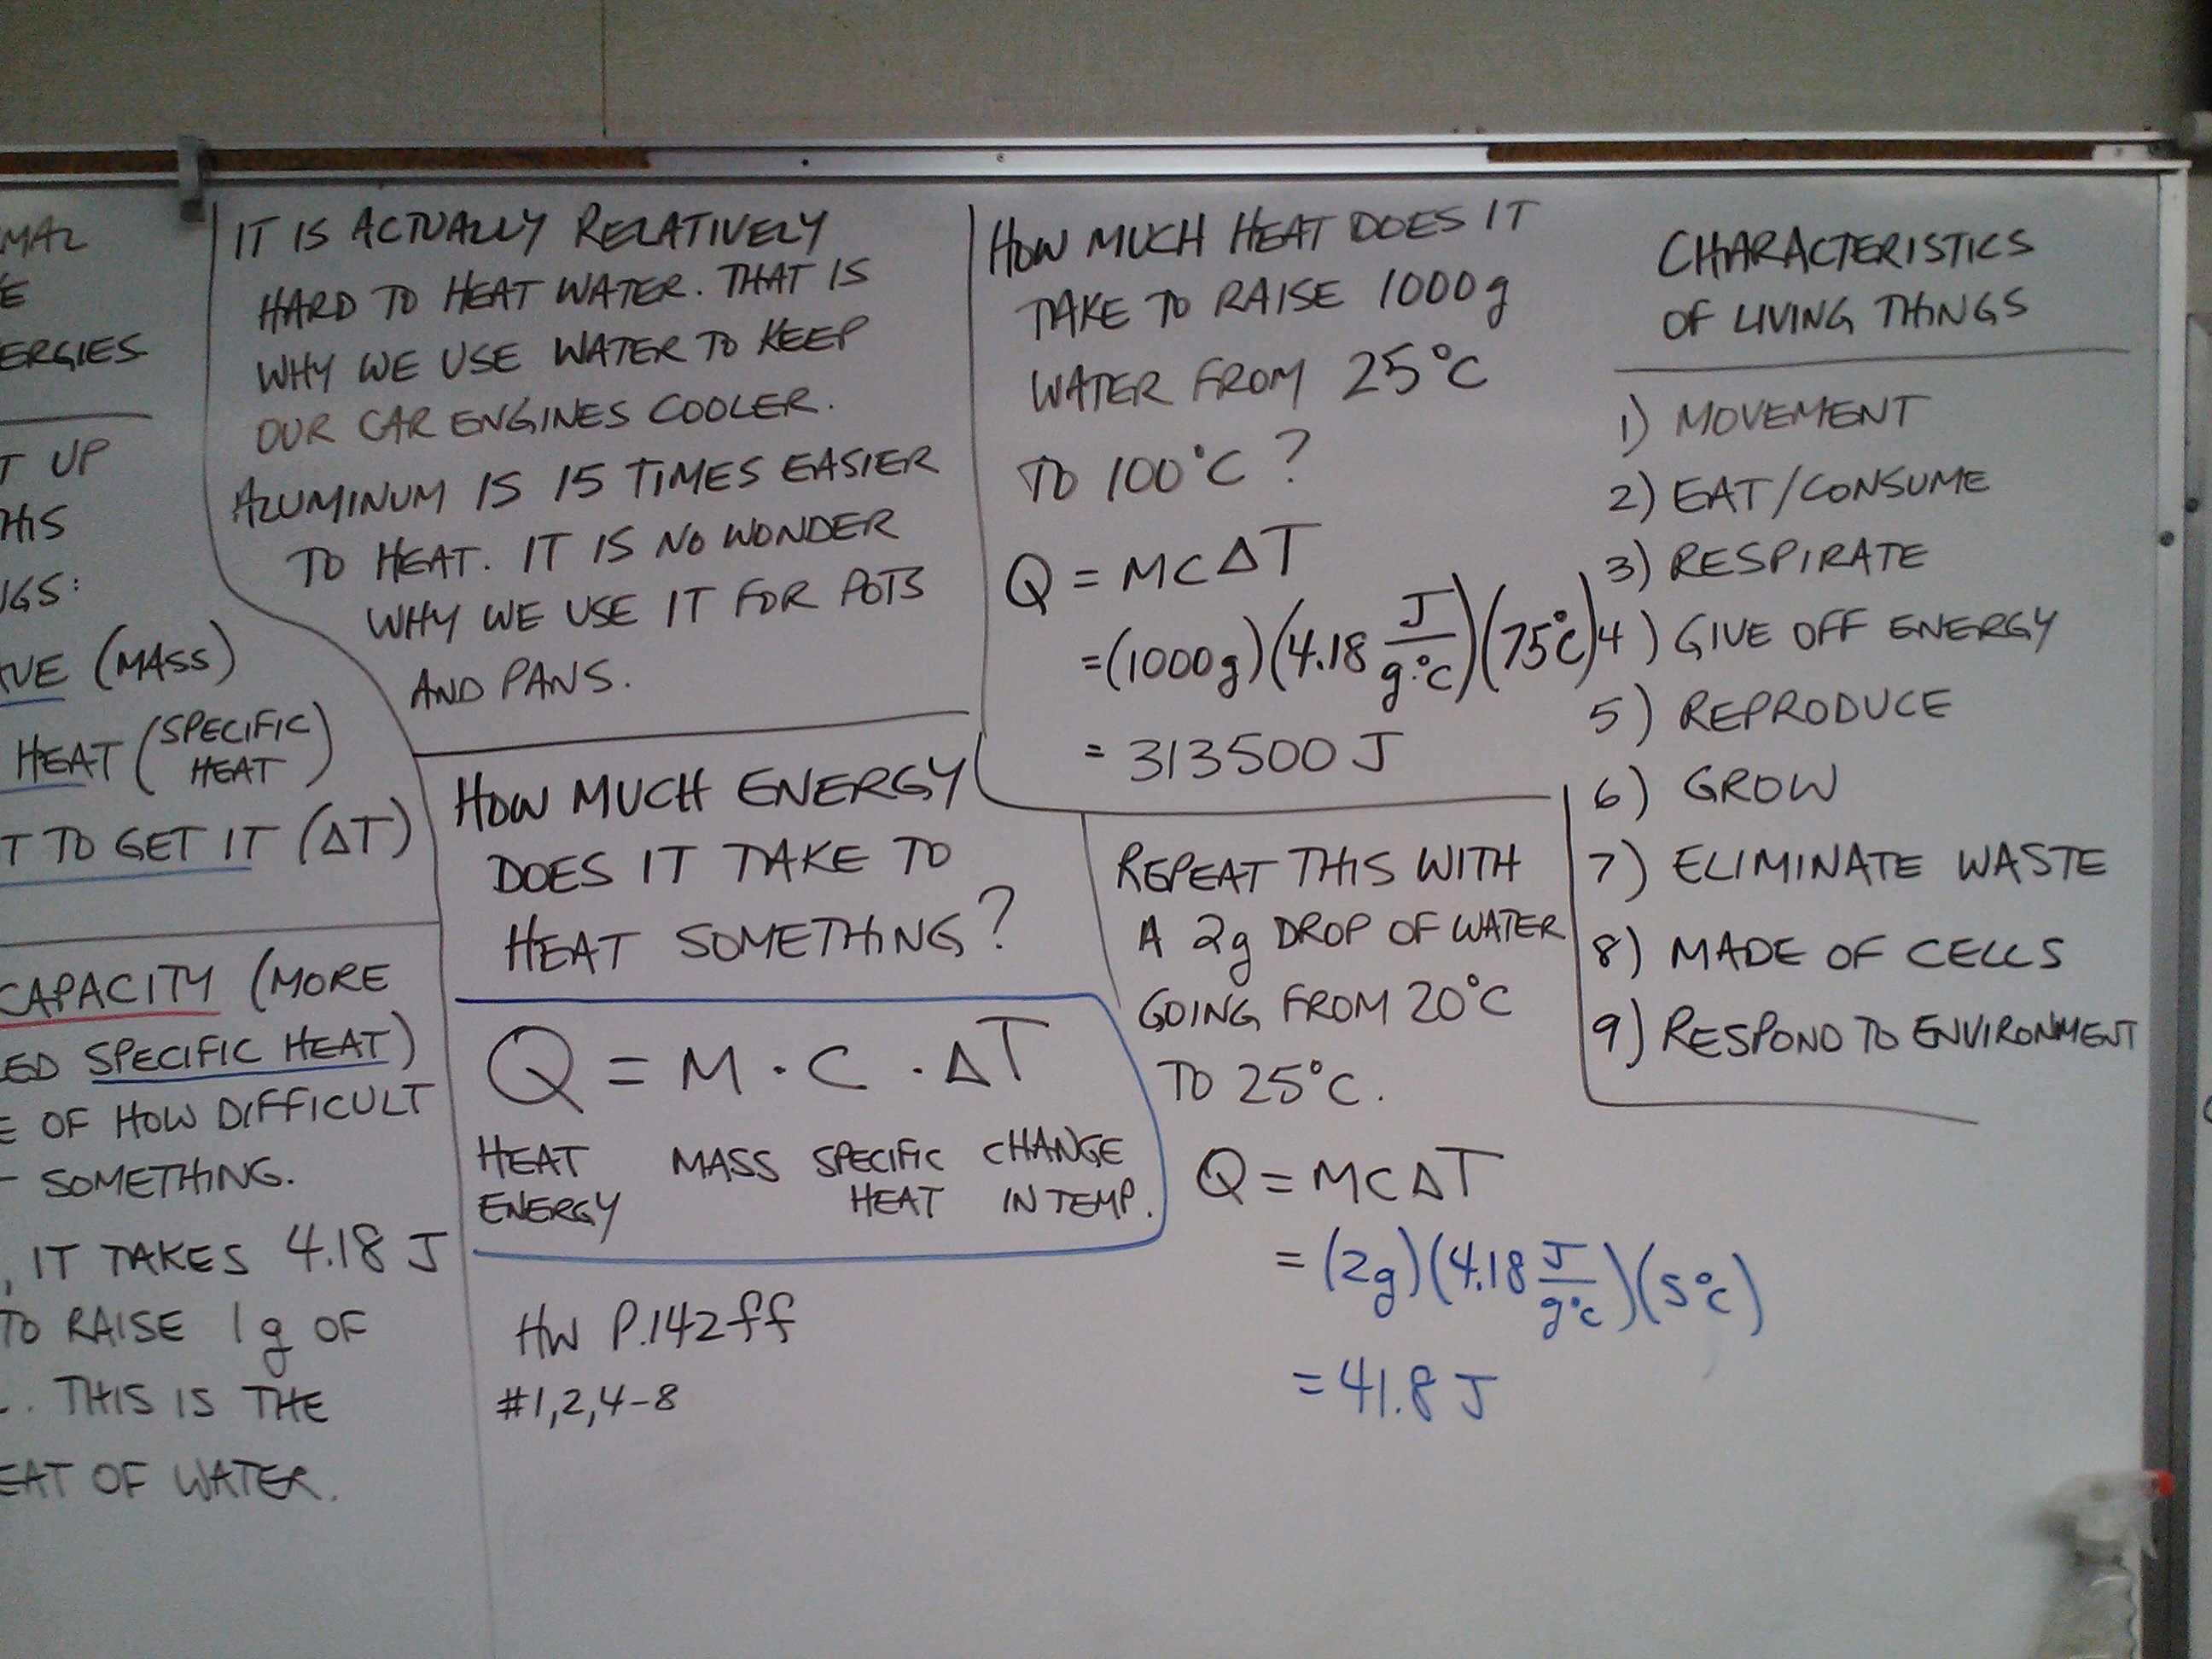 MAL
ERGIES
T UP
HIS
GS:
VE (MASS)
HEAT (SPECIFIC HEAT)
T TO GET IT (ΔT)
CAPACITY (MORE
ED SPECIFIC HEAT)
E OF HOW DIFFICULT
SOMETHING.
, IT TAKES 4.18 J
TO RAISE 1g OF
. THIS IS THE
EAT OF WATER.
IT IS ACTUALLY RELATIVELY
HARD TO HEAT WATER. THAT IS
WHY WE USE WATER TO KEEP
OUR CAR ENGINES COOLER.
ALUMINUM IS 15 TIMES EASIER
TO HEAT. IT IS NO WONDER
WHY WE USE IT FOR POTS
AND PANS.
HOW MUCH ENERGY
DOES IT TAKE TO
HEAT SOMETHING?
Q = M · C · ΔT
HEAT MASS SPECIFIC CHANGE
ENERGY HEAT IN TEMP.
HW P.142ff
#1,2,4-8
HOW MUCH HEAT DOES IT
TAKE TO RAISE 1000g
WATER FROM 25°C
TO 100°C?
Q = MCΔT
=(1000g)(4.18 J/g·°C)(75°C)
= 313500 J
REPEAT THIS WITH
A 2g DROP OF WATER
GOING FROM 20°C
TO 25°C.
Q = MCΔT
= (2g)(4.18 J/g°C)(5°C)
= 41.8 J
CHARACTERISTICS
OF LIVING THINGS
1) MOVEMENT
2) EAT/CONSUME
3) RESPIRATE
4) GIVE OFF ENERGY
5) REPRODUCE
6) GROW
7) ELIMINATE WASTE
8) MADE OF CELLS
9) RESPOND TO ENVIRONMENT